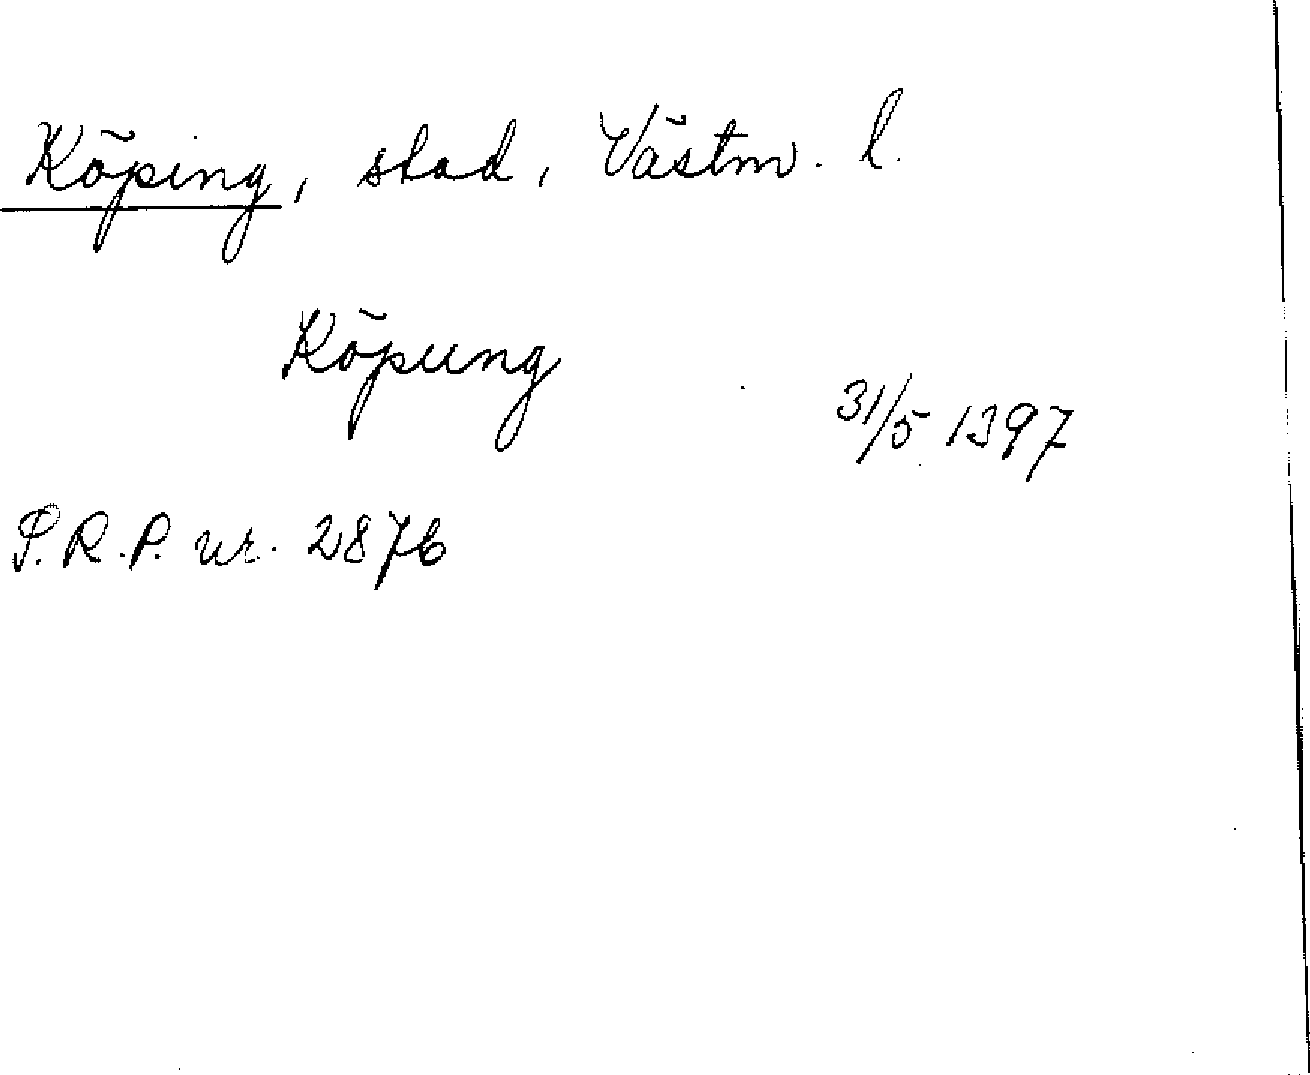 Köping, stad, Västm. l.
Köpung
31/5 1397
S.R.P. nr. 2876